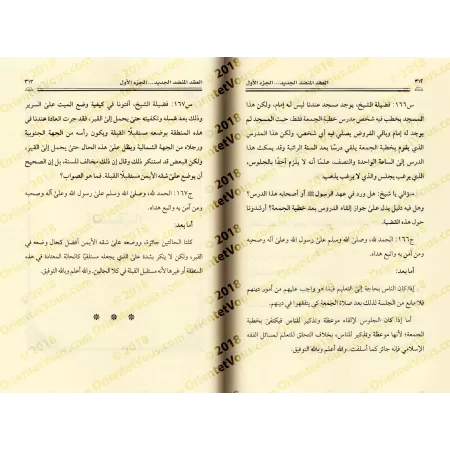 ٣١٢ العقد المنضد الجديد... الجزء الأول
س١٦٦: فضيلة الشيخ، يوجد مسجد عندنا ليس له إمام، ولكن هذا
المسجد يخطب فيه شخص خطبة الجمعة فقط، حيث المسجد لم
يوجد له إمام وباقي الفروض يصلي فيه أي شخص، ولكن هذا الشخص
الذي يقوم بخطبة الجمعة يلقي درسًا بعد السنة الراتبة وقد يمكث هذا
الدرس إلى الساعة الواحدة والنصف، علمًا أنه لا يلزم أحدًا بالجلوس،
الذي يرغب يجلس والذي لا يرغب يذهب.
سؤالي يا شيخ: هل ورد في عهد الرسول ﷺ أو أصحابه هذا الدرس؟
وهل فيه دليل يدل على جواز إلقاء الدروس بعد خطبة الجمعة؟ أرشدونا
حول هذه القضية.
ج١٦٦: الحمد لله، وصلى الله وسلم على رسول الله وعلى آله وصحبه
ومن به واتبع هداه.
أما بعد:
إذا كان الناس بحاجة إلى التعليم فيما هو واجب عليهم من أمور دينهم
فلا مانع من الجلسة لذلك بعد صلاة الجمعة كي يتفقهوا في دينهم.
أما إذا كان الجلوس لإلقاء موعظة وتذكير للناس فيكتفى بخطبة
الجمعة؛ لأنها موعظة وتذكير للناس، بخلاف التحلق للتعليم لمسائل الفقه
الإسلامي فإنه جائز كما أسلفت. والله أعلم وبالله التوفيق.
العقد المنضد الجديد... الجزء الأول ٣١٣
س١٦٧: فضيلة الشيخ، أفتونا في كيفية وضع الميت على السرير
وذلك بعد غسله وتكفينه حتى يحمل إلى القبر، فقد جرت العادة عندنا في
هذه المنطقة بوضعه مستقبلًا القبلة ويكون رأسه من الجهة الجنوبية
ورجلاه من الجهة الشمالية ويظل على هذه الحال حتى يحمل إلى القبر،
ولكن البعض قد استنكر ذلك وقال إن ذلك مخالف للسنة، بل إن الصحيح
أن يوضع على شقه الأيمن مستقبلًا القبلة. فما هو الصواب؟
ج١٦٧: الحمد لله، وصلى الله وسلم على رسول الله وعلى آله وصحبه
ومن به واتبع هداه.
أما بعد:
كلتا الحالتين جائزة، ووضعه على شقه الأيمن أفضل كحال وضعه في
القبر، ولكن لا ينكر بشدة على الذي يجعله مستلقيًا كالحالة المعتادة في هذه
المنطقة أو غيرها لأنه مستقبل القبلة في كلا الحالين. والله أعلم وبالله التوفيق.
* * *
OrientetVous.com 2018